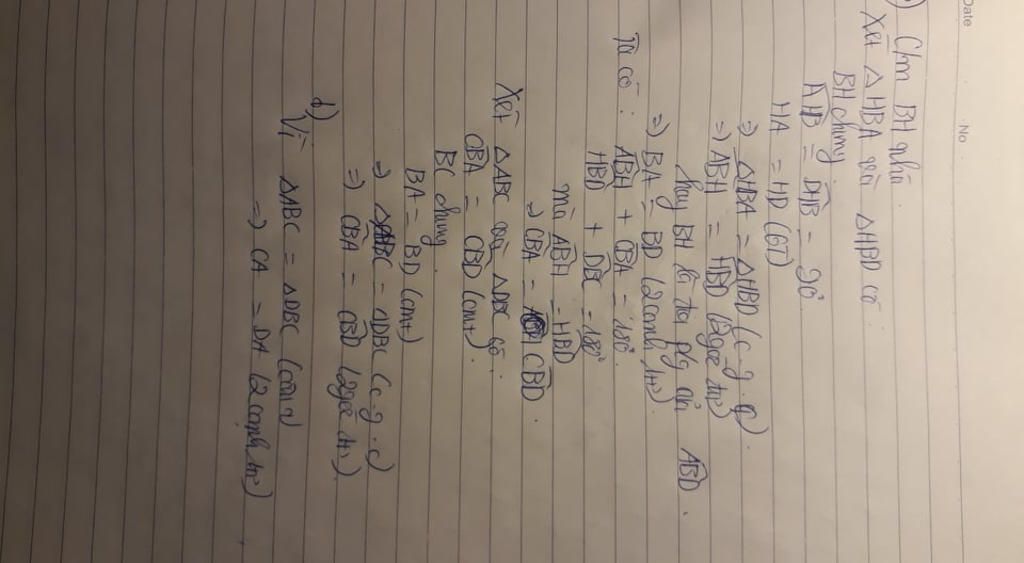 Date
No
Cm BH là
Xét △HBA và △HBD có
BH chung
AHB = DHB = 90°
HA = HD (GT)
⇒ △HBA = △HBD (c.g.c)
⇒ ABH = HBD (2 góc t/ứ)
hay BH là tia p/g của ABD.
⇒ BA = BD (2 cạnh t/ứ)
Ta có: ABH + CBA = 180°
HBD + DBC = 180°
mà ABH = HBD
⇒ CBA = CBD.
Xét △ABC và △DBC có:
CBA = CBD (cmt)
BC chung
BA = BD (cmt)
⇒ △ABC = △DBC (c.g.c)
⇒ CBA = CBD (2 góc t/ứ)
d) Vì △ABC = △DBC (câu c)
⇒ CA = DA (2 cạnh t/ứ)